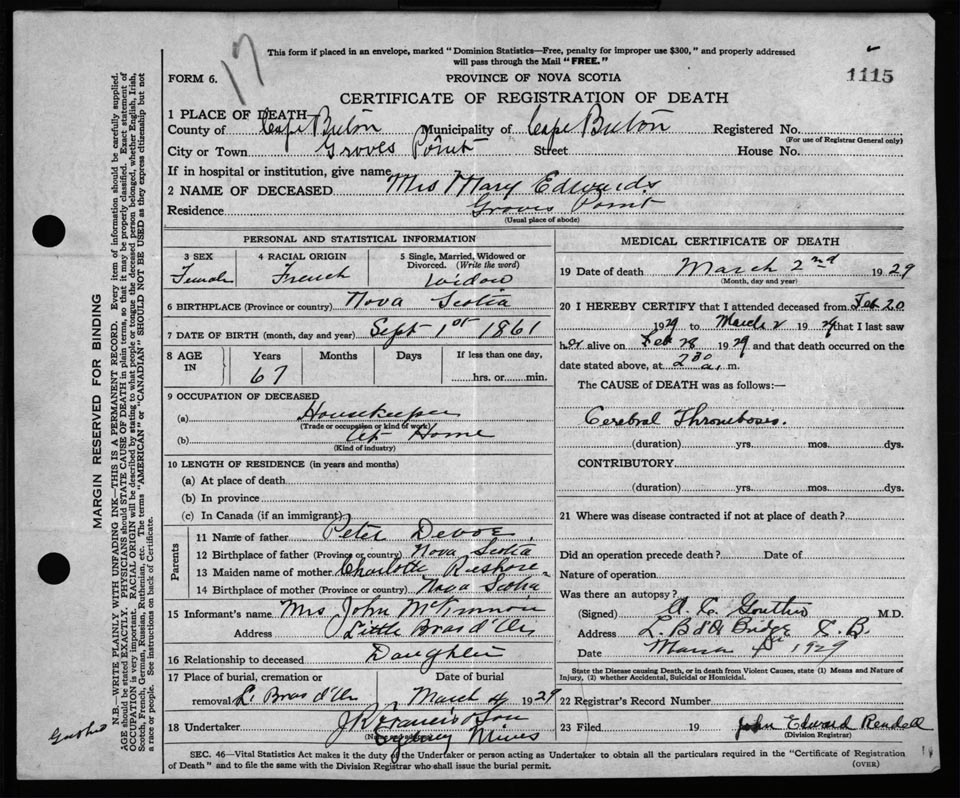 17
This form if placed in an envelope, marked "Dominion Statistics—Free, penalty for improper use $300," and properly addressed
will pass through the Mail "FREE."
FORM 6.
PROVINCE OF NOVA SCOTIA
1115
CERTIFICATE OF REGISTRATION OF DEATH
1 PLACE OF DEATH
County of Cape Breton Municipality of Cape Breton Registered No.
(For use of Registrar General only)
City or Town Groves Point Street House No.
If in hospital or institution, give name
2 NAME OF DECEASED Mrs Mary Edwards
Residence Groves Point
(Usual place of abode)
PERSONAL AND STATISTICAL INFORMATION
3 SEX 4 RACIAL ORIGIN 5 Single, Married, Widowed or
Divorced. (Write the word)
Female French Widow
6 BIRTHPLACE (Province or country) Nova Scotia
7 DATE OF BIRTH (month, day and year) Sept 1st 1861
8 AGE IN Years Months Days If less than one day,
67 hrs. or min.
9 OCCUPATION OF DECEASED
(a) Housekeeper
(Trade or occupation or kind of work)
(b) At Home
(Kind of industry)
10 LENGTH OF RESIDENCE (in years and months)
(a) At place of death
(b) In province
(c) In Canada (if an immigrant)
Parents
11 Name of father Peter Devoe
12 Birthplace of father (Province or country) Nova Scotia
13 Maiden name of mother Charlotte
14 Birthplace of mother (Province or country) Nova Scotia
15 Informant's name Mrs John McKinnon
Address Little Bras d'Or
16 Relationship to deceased Daughter
17 Place of burial, cremation or Date of burial
removal L. Bras d'Or March 4 1929
18 Undertaker J R Francis & Son
Sydney Mines
MEDICAL CERTIFICATE OF DEATH
19 Date of death March 2nd 1929
(Month, day and year)
20 I HEREBY CERTIFY that I attended deceased from Feb 20
1929 to March 2 1929 that I last saw
her alive on Feb 28 1929 and that death occurred on the
date stated above, at 2 30 a. m.
The CAUSE of DEATH was as follows:—
Cerebral Thromboses.
(duration) yrs. mos. dys.
CONTRIBUTORY
(duration) yrs. mos. dys.
21 Where was disease contracted if not at place of death?
Did an operation precede death? Date of
Nature of operation
Was there an autopsy?
(Signed) M.D.
Address L. B d'Or Bridge C.B.
Date March 1929
State the Disease causing Death, or in death from Violent Causes, state (1) Means and Nature of
Injury, (2) whether Accidental, Suicidal or Homicidal.
22 Registrar's Record Number
23 Filed 19 John Edward Rendell
(Division Registrar)
SEC. 46—Vital Statistics Act makes it the duty of the Undertaker or person acting as Undertaker to obtain all the particulars required in the "Certificate of Registration
of Death" and to file the same with the Division Registrar who shall issue the burial permit.
(OVER)
MARGIN RESERVED FOR BINDING
N.B.—WRITE PLAINLY WITH UNFADING INK—THIS IS A PERMANENT RECORD. Every item of information should be carefully supplied.
AGE should be stated EXACTLY. PHYSICIANS should STATE CAUSE OF DEATH in plain terms, so that it may be properly classified. Exact statement of
OCCUPATION is very important. RACIAL ORIGIN will be described by stating to what people or tongue the deceased person belonged, whether English, Irish,
Scotch, French, German, Russian, Ruthenian, etc. The terms "AMERICAN" or "CANADIAN" SHOULD NOT BE USED as they express citizenship but not
a race or people. See instructions on back of Certificate.